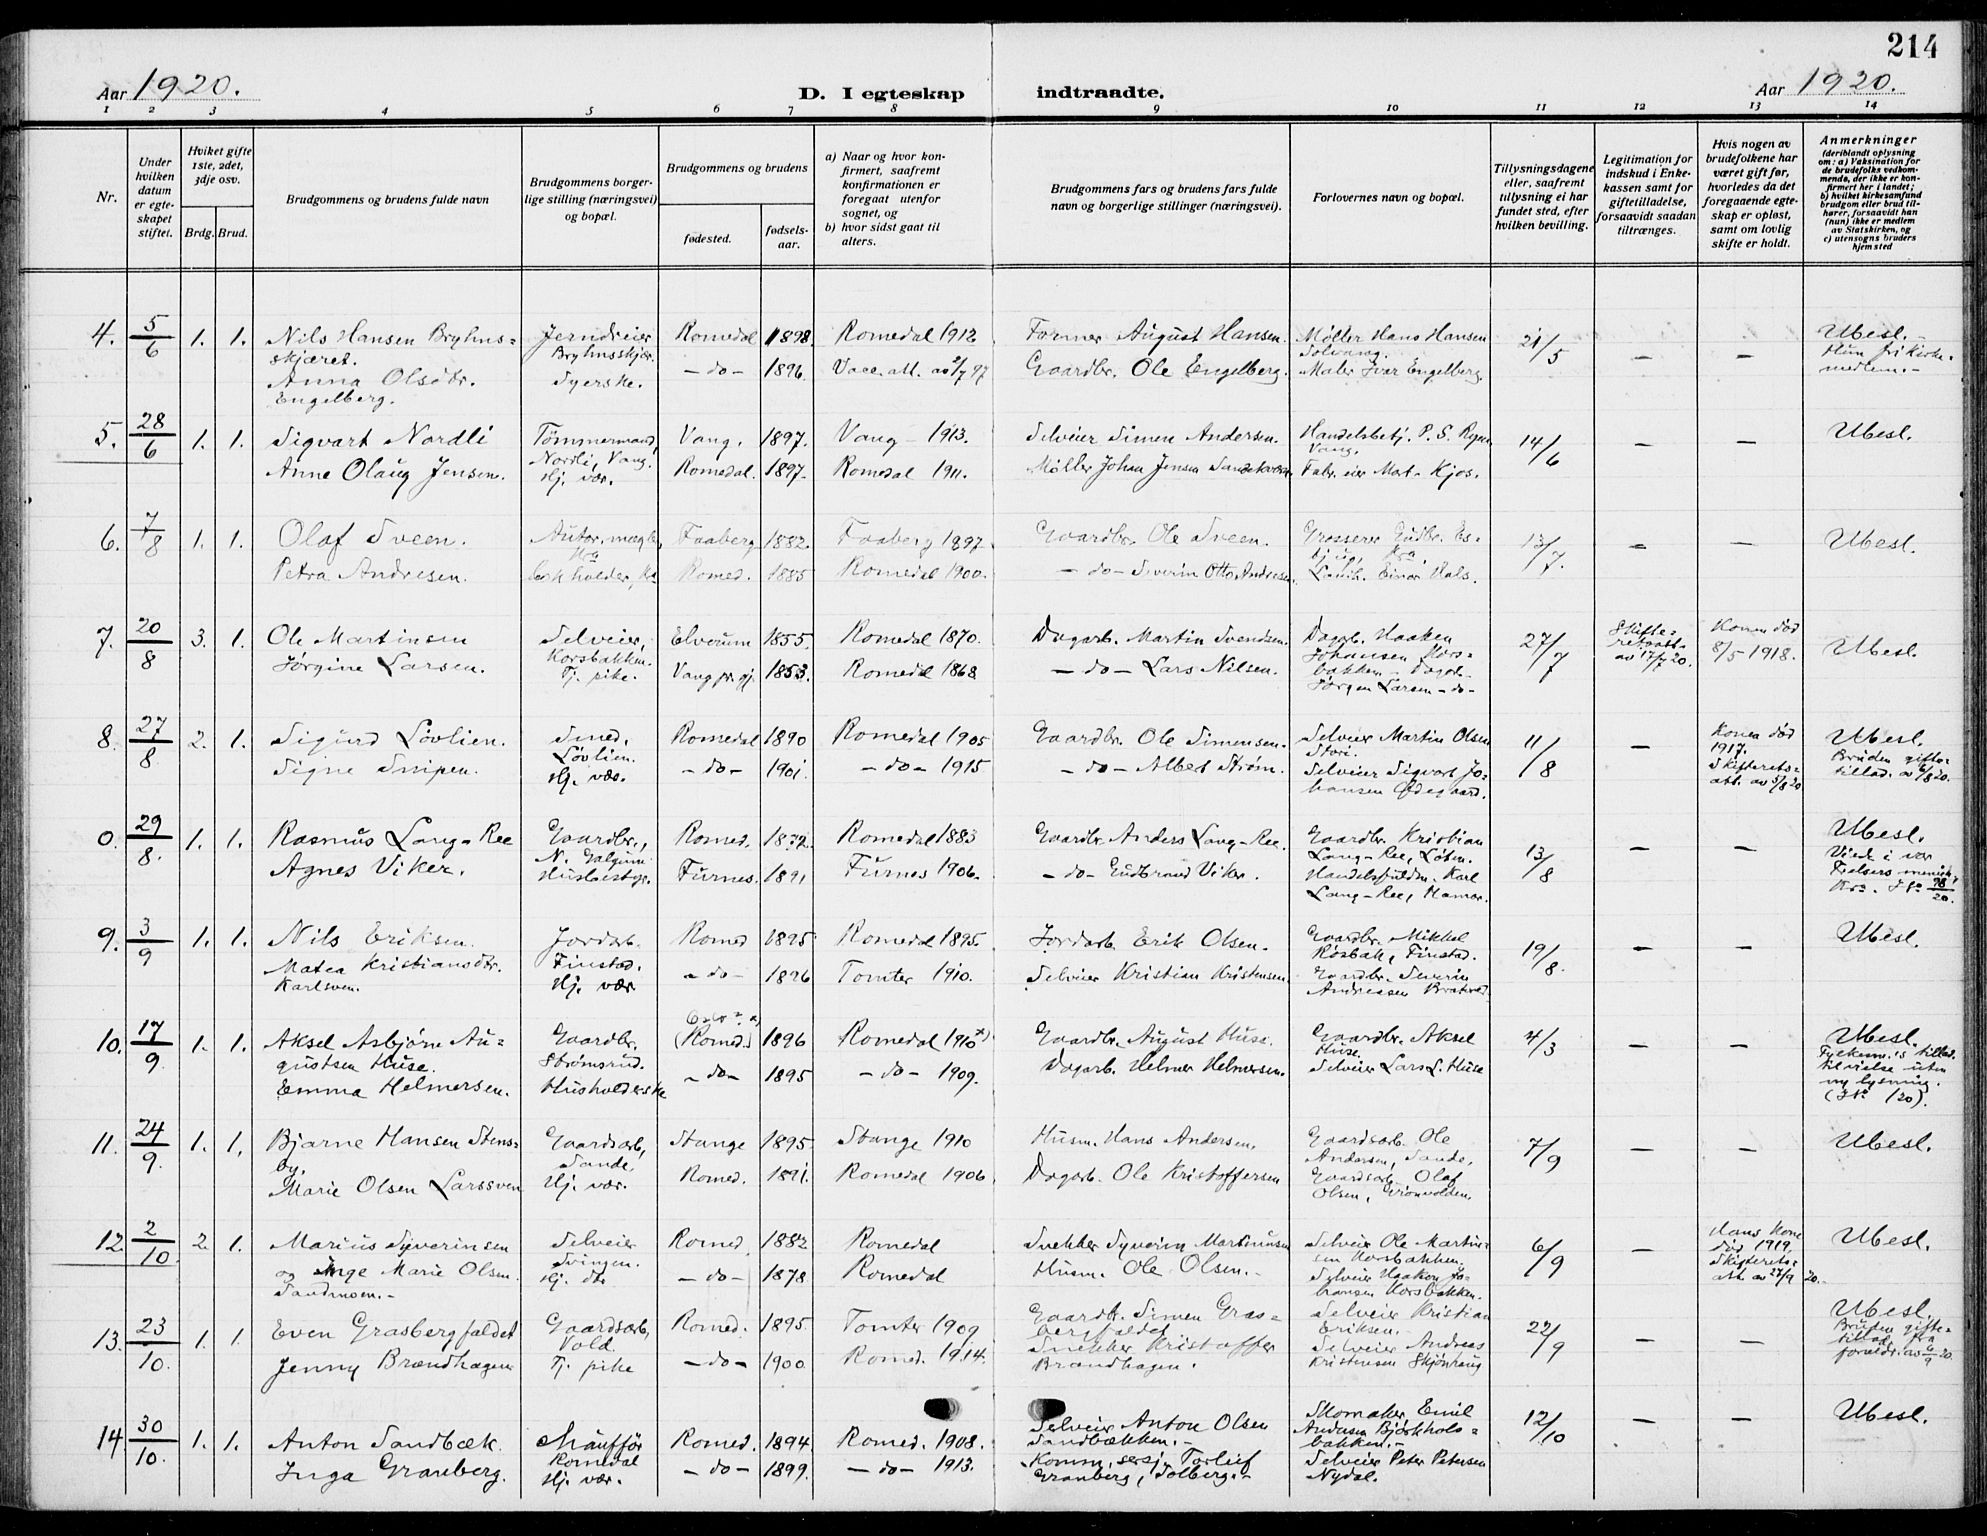 214
Aar 1920.
D. I egteskap indtraadte.
Aar 1920.
1 2 3 4 5 6 7 8 9 10 11 12 13 14
Nr.
Under hvilken datum er egteskapet stiftet.
Hvilket gifte 1ste, 2det, 3dje osv.
Brdg. Brud.
Brudgommens og brudens fulde navn
Brudgommens borgerlige stilling (næringsvei) og bopæl.
Brudgommens og brudens
fødested.
fødselsaar.
a) Naar og hvor konfirmert, saafremt konfirmationen er foregaat utenfor sognet, og
b) hvor sidst gaat til alters.
Brudgommens fars og brudens fars fulde navn og borgerlige stillinger (næringsvei).
Forlovernes navn og bopæl.
Tillysningsdagene eller, saafremt tillysning ei har fundet sted, efter hvilken bevilling.
Legitimation for indskud i Enkekassen samt for giftetilladelse, forsaavidt saadan tiltrænges.
Hvis nogen av brudefolkene har været gift før, hvorledes da det foregaaende egteskap er opløst, samt om lovlig skifte er holdt.
Anmerkninger (deriblandt oplysning om: a) Vaksination for de brudefolks vedkommende, der ikke er konfirmert her i landet; b) hvilket kirkesamfund brudgom eller brud tilhører, forsaavidt han (hun) ikke er medlem av Statskirken, og c) utensogns bruders hjemsted
4. 5/6 1. 1. Nils Hansen Bryhns= Jerndreier Romedal 1898 Romedal 1912 Former August Hansen. Møller Hans Hansen 21/5 — — Ubesl.
skjæret. Bryhnsskjær. Solvang. Hun frikirke=
Anna Olsdtr. Syerske. —do— 1896. Vacc. att. av 2/7 97 Gaardbr. Ole Engelberg. Maler Ivar Engelberg. medlem.—
Engelberg.
5. 28/6 1. 1. Sigvart Nordli Tømmermand, Vang. 1897. Vang — 1913. Selveier Simen Andersen. Handelsbetj. P. S. 14/6 — — Ubesl.
Nordli, Vang. Vang.
Anne Olaug Jensen. Hj. vær. Romedal. 1897. Romedal 1911. Møller Johan Jensen Fabr. eier Mart. Kjos.
6. 7/8 1. 1. Olaf Sveen. Autor. mægler, Faaberg 1882. Faaberg 1897. Gaardbr. Ole Sveen. Grosserer Gudbr. 13/7. — — Ubesl.
Kra Kra.
Petra Andresen. Romed. 1885 Romedal 1900. —do— Severin Otto Andresen. Einar Hals.
7. 20/8 3. 1. Ole Martinsen Selveier, Elverum 1855. Romedal 1870. Dagarb. Martin Svendsen. Dagarb. Haaken 27/7 Skifte= Konen død Ubesl.
Korsbakken. Johansen Kors= retsatt. 8/5 1918.
Jørgine Larsen. Tj. pike. Vang pr.gj. 1853. Romedal 1868 —do— Lars Nilsen. bakken — Dagarb. av 17/7 20.
Jørgen Larsen —do—
8. 27/8 2. 1. Sigurd Løvlien. Smed, Romedal 1890 Romedal 1905 Gaardbr. Ole Simensen. Selveier Martin Olsen 11/8 — Konen død Ubesl.
Løvlien. 1917. Bruden gifte=
Signe Snipen. Hj. vær. —do— 1901. —do— 1915 —do— Albert Strøm. Selveier Sigvart Jo= Skifterets= tillad. av 6/8 20.
hansen Ødegaard. att. av 5/8 20
0. 29/8. 1. 1. Rasmus Lang-Ree Gaardbr., Romed. 1872. Romedal 1883 Gaardbr. Anders Lang-Ree. Gaardbr. Kristian 13/8 — — Ubesl.
Lang-Ree, Løten. Viede i vor
Agnes Viker. Husbestyr. Furnes. 1891 Furnes 1906. —do— Gudbrand Viker. Handelsfuldm. Karl Frelsers menigh.
Lang-Ree, Hamar. Kra. J.№ 98/20.
9. 3/9 1. 1. Nils Eriksen. Jordarb. Romed 1895 Romedal 1895. Jordarb. Erik Olsen. Gaardbr. Mikkel 19/8. — — Ubesl.
Finstad. Røsbak, Finstad.
Matea Kristiansdtr. Hj. vær —do— 1896 Tomter 1910. Selveier Kristian Kristensen. Gaardbr. Severin
Karlsven. Andreassen
10. 17/9 1. 1. Aksel Asbjørn Au= Gaardbr. (Romed.) 1896 Romedal 1910 x) Gaardbr. August Huse. Gaardbr. Aksel 4/3 — — Ubesl.
gustsen Huse. Strømsrud. Huse. Fylkesm.s tillad.
Emma Helmersen. Husholderske —do— 1895 —do— 1909. Dagarb. Helmer Helmersen. Selveier Lars L. Huse til vielse uten
ny lysning.
(J№ 120).
11. 24/9. 1. 1. Bjarne Hansen Stens= Gaardsarb, Stange 1895 Stange 1910 Husm. Hans Andersen. Gaardsarb. Ole 7/9 — — Ubesl.
by. Sande. Andersen, Sande,
Marie Olsen Larssven Hj. vær. Romed. 1891. Romedal 1906 Dagarb. Ole Kristoffersen Gaardsarb. Olaf
Olsen, Grønvolden.
12. 2/10 2. 1. Marius Syverinsen Selveier Romed. 1882 Romedal Snekker Syverin Martinusen Selveier Ole Martin= 6/9 — Hans kone Ubesl.
Svingen. sen Korsbakken. død 1919.
og Inge Marie Olsen Hj. dtr —do— 1878 Romedal Husm. Ole Olsen.— Selveier Haakon Jo= Skifterets=
Sandmoen.— hansen Korsbakken. att. av 27/9 20.—
13. 23/10. 1. 1. Even Grasbergfaldet Gaardsarb, Romed. 1895. Tomter 1909 Gaardbr. Simen Gras= Selveier Kristian 22/9 — — Ubesl.
Vold. bergfaldet Eriksen.— Bruden gifte=
Jenny Brændhagen Tj. pike —do— 1900 Romed. 1914. Snekker Kristoffer Selveier Andreas tillad. fra
Brændhagen. Kristensen Skjønhaug forældr. av 6/9 20.
14. 30/10. 1. 1. Anton Sandbæk. Chauffør Romed. 1894 Romed. 1908. Selveier Anton Olsen Skomaker Emil 12/10 — — Ubesl.
Romedal Sandbækken.— Andersen Bjørkhols=
bakken.—
Inga Granberg. Hj. vær. —do— 1899. —do— 1913. Komm. sersj. Torleif Selveier Peter Petersen
Granberg, Solberg.— Nydal.